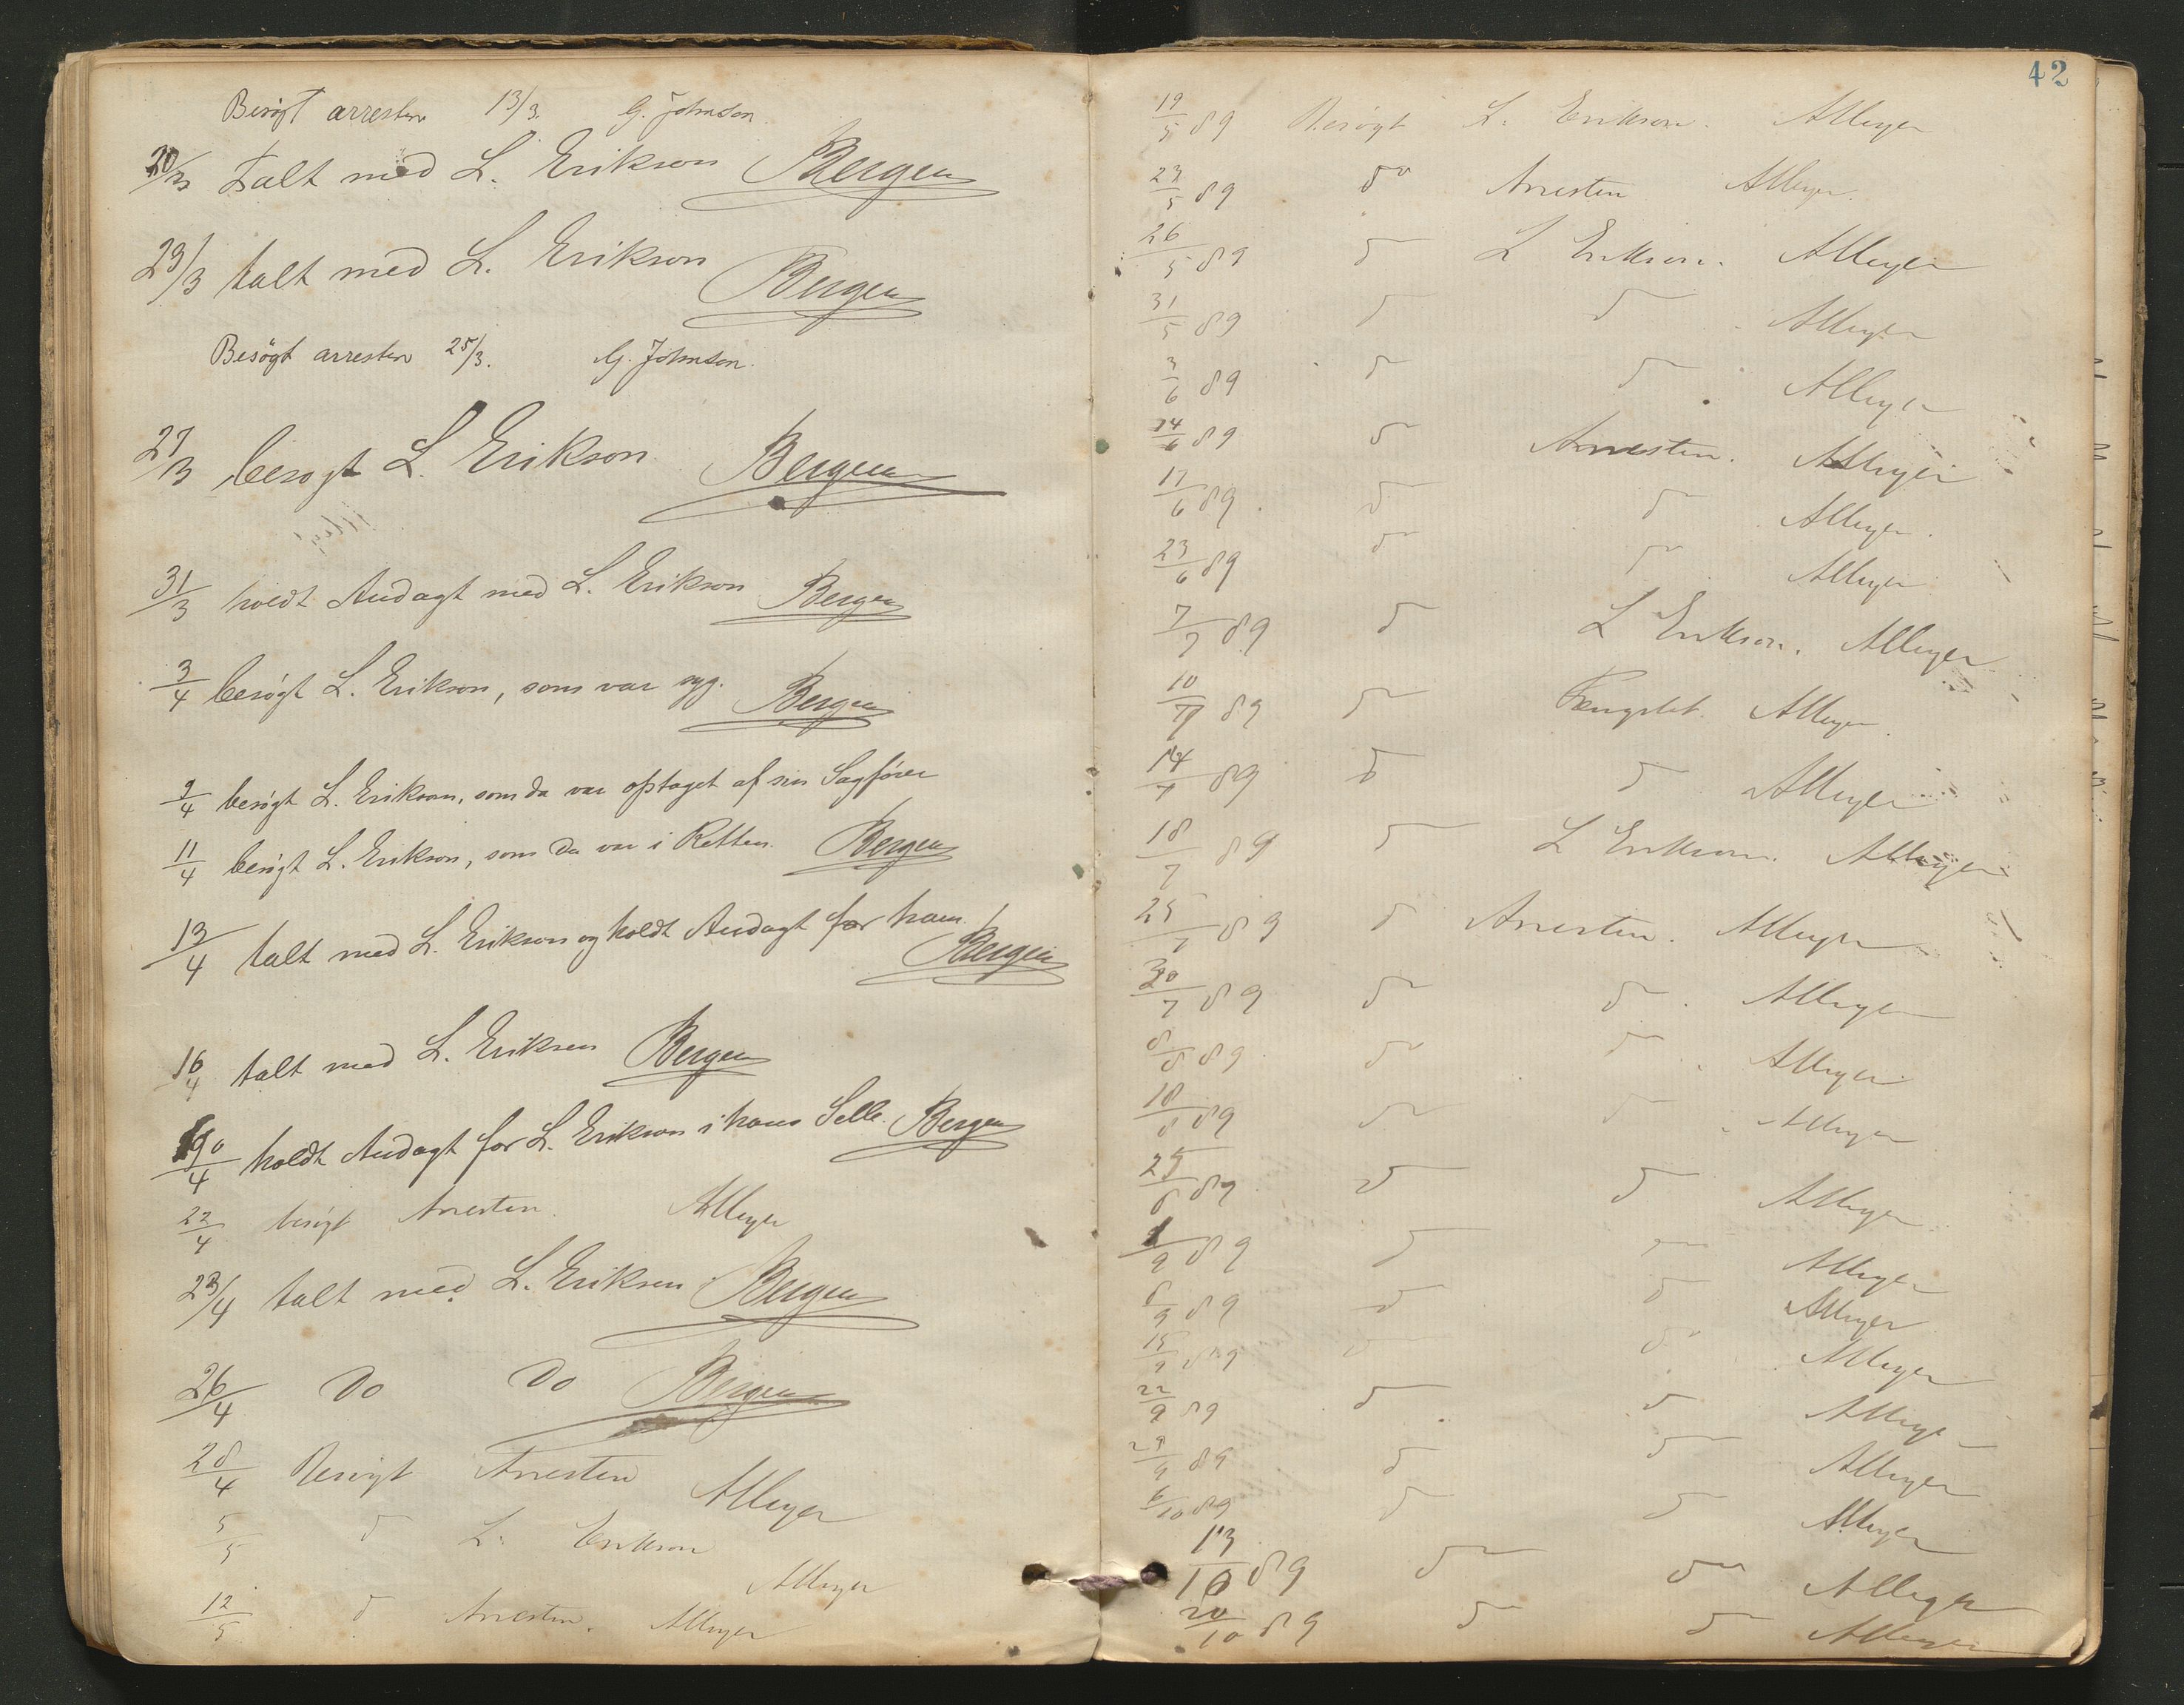 Besögt arresten 13/3. G. Johnson
20/3 Talt med L. Erikson Bergen
23/3 talt med L. Erikson
Bergen
Besögt arresten 25/3. G. Johnson.
27/3 besøgt L. Erikson Bergen
31/3 holdt Andagt med L. Erikson Bergen
3/4 besøgt L. Erikson, som var syg. Bergen
9/4 besøgt L. Erikson, som da var optaget af sin Sagfører
11/4 besøgt L. Erikson, som da var i Retten. Bergen
13/4 talt med L. Erikson og holdt Andagt for ham.
Bergen
16/4 talt med L. Erikson Bergen
/4 holdt Andagt for L. Erikson i hans Selle. Bergen
22/4 besøgt Arresten. AMeyer
23/4 talt med L. Erikson Bergen
26/4 Do Do Bergen
28/4 Besøgt Arresten AMeyer
5/5 do L. Erikson
AMeyer
12/5 do Arresten. AMeyer
42
19/5 89 Besøgt L. Erikson. AMeyer
23/5 89 do Arresten AMeyer.
26/5 89 do L Erikson. AMeyer
31/5 89 do do AMeyer
3/6 89 do do AMeyer
14/6 89 do Arresten. AMeyer
17/6 89. do do AMeyer.
23/6 89 do do AMeyer
7/7 89 do L Erikson. AMeyer
10/7 89 do Fængslet. AMeyer
14/7 89 do do AMeyer
18/7 89 do L Erikson. AMeyer
25/7 89 do Arresten. AMeyer
30/7 89 do do. AMeyer
8/8 89 do do. AMeyer
18/8 89 do do AMeyer
25/8 89 do do AMeyer
1/9 89 do do AMeyer
8/9 89 do do AMeyer
15/9 89 do do AMeyer
22/9 89 do do AMeyer
29/9 89 do do AMeyer
6/10 89 do do AMeyer
13/10 89 do do AMeyer
20/10 89 do do AMeyer